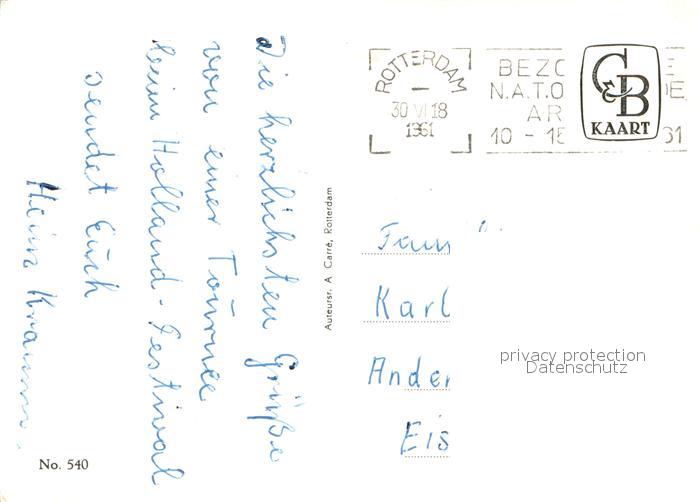 Die herzlichsten Grüße
von einer Tournee
beim Holland-Festival
sendet Euch
Hein
No. 540
Auteursr. A Carré, Rotterdam
ROTTERDAM
30 VI 18
1961
BEZO
N.A.T.O DE
AR
10 - 15 61
C&B
KAART
Fam
Karl
Ander
Eis
privacy protection
Datenschutz